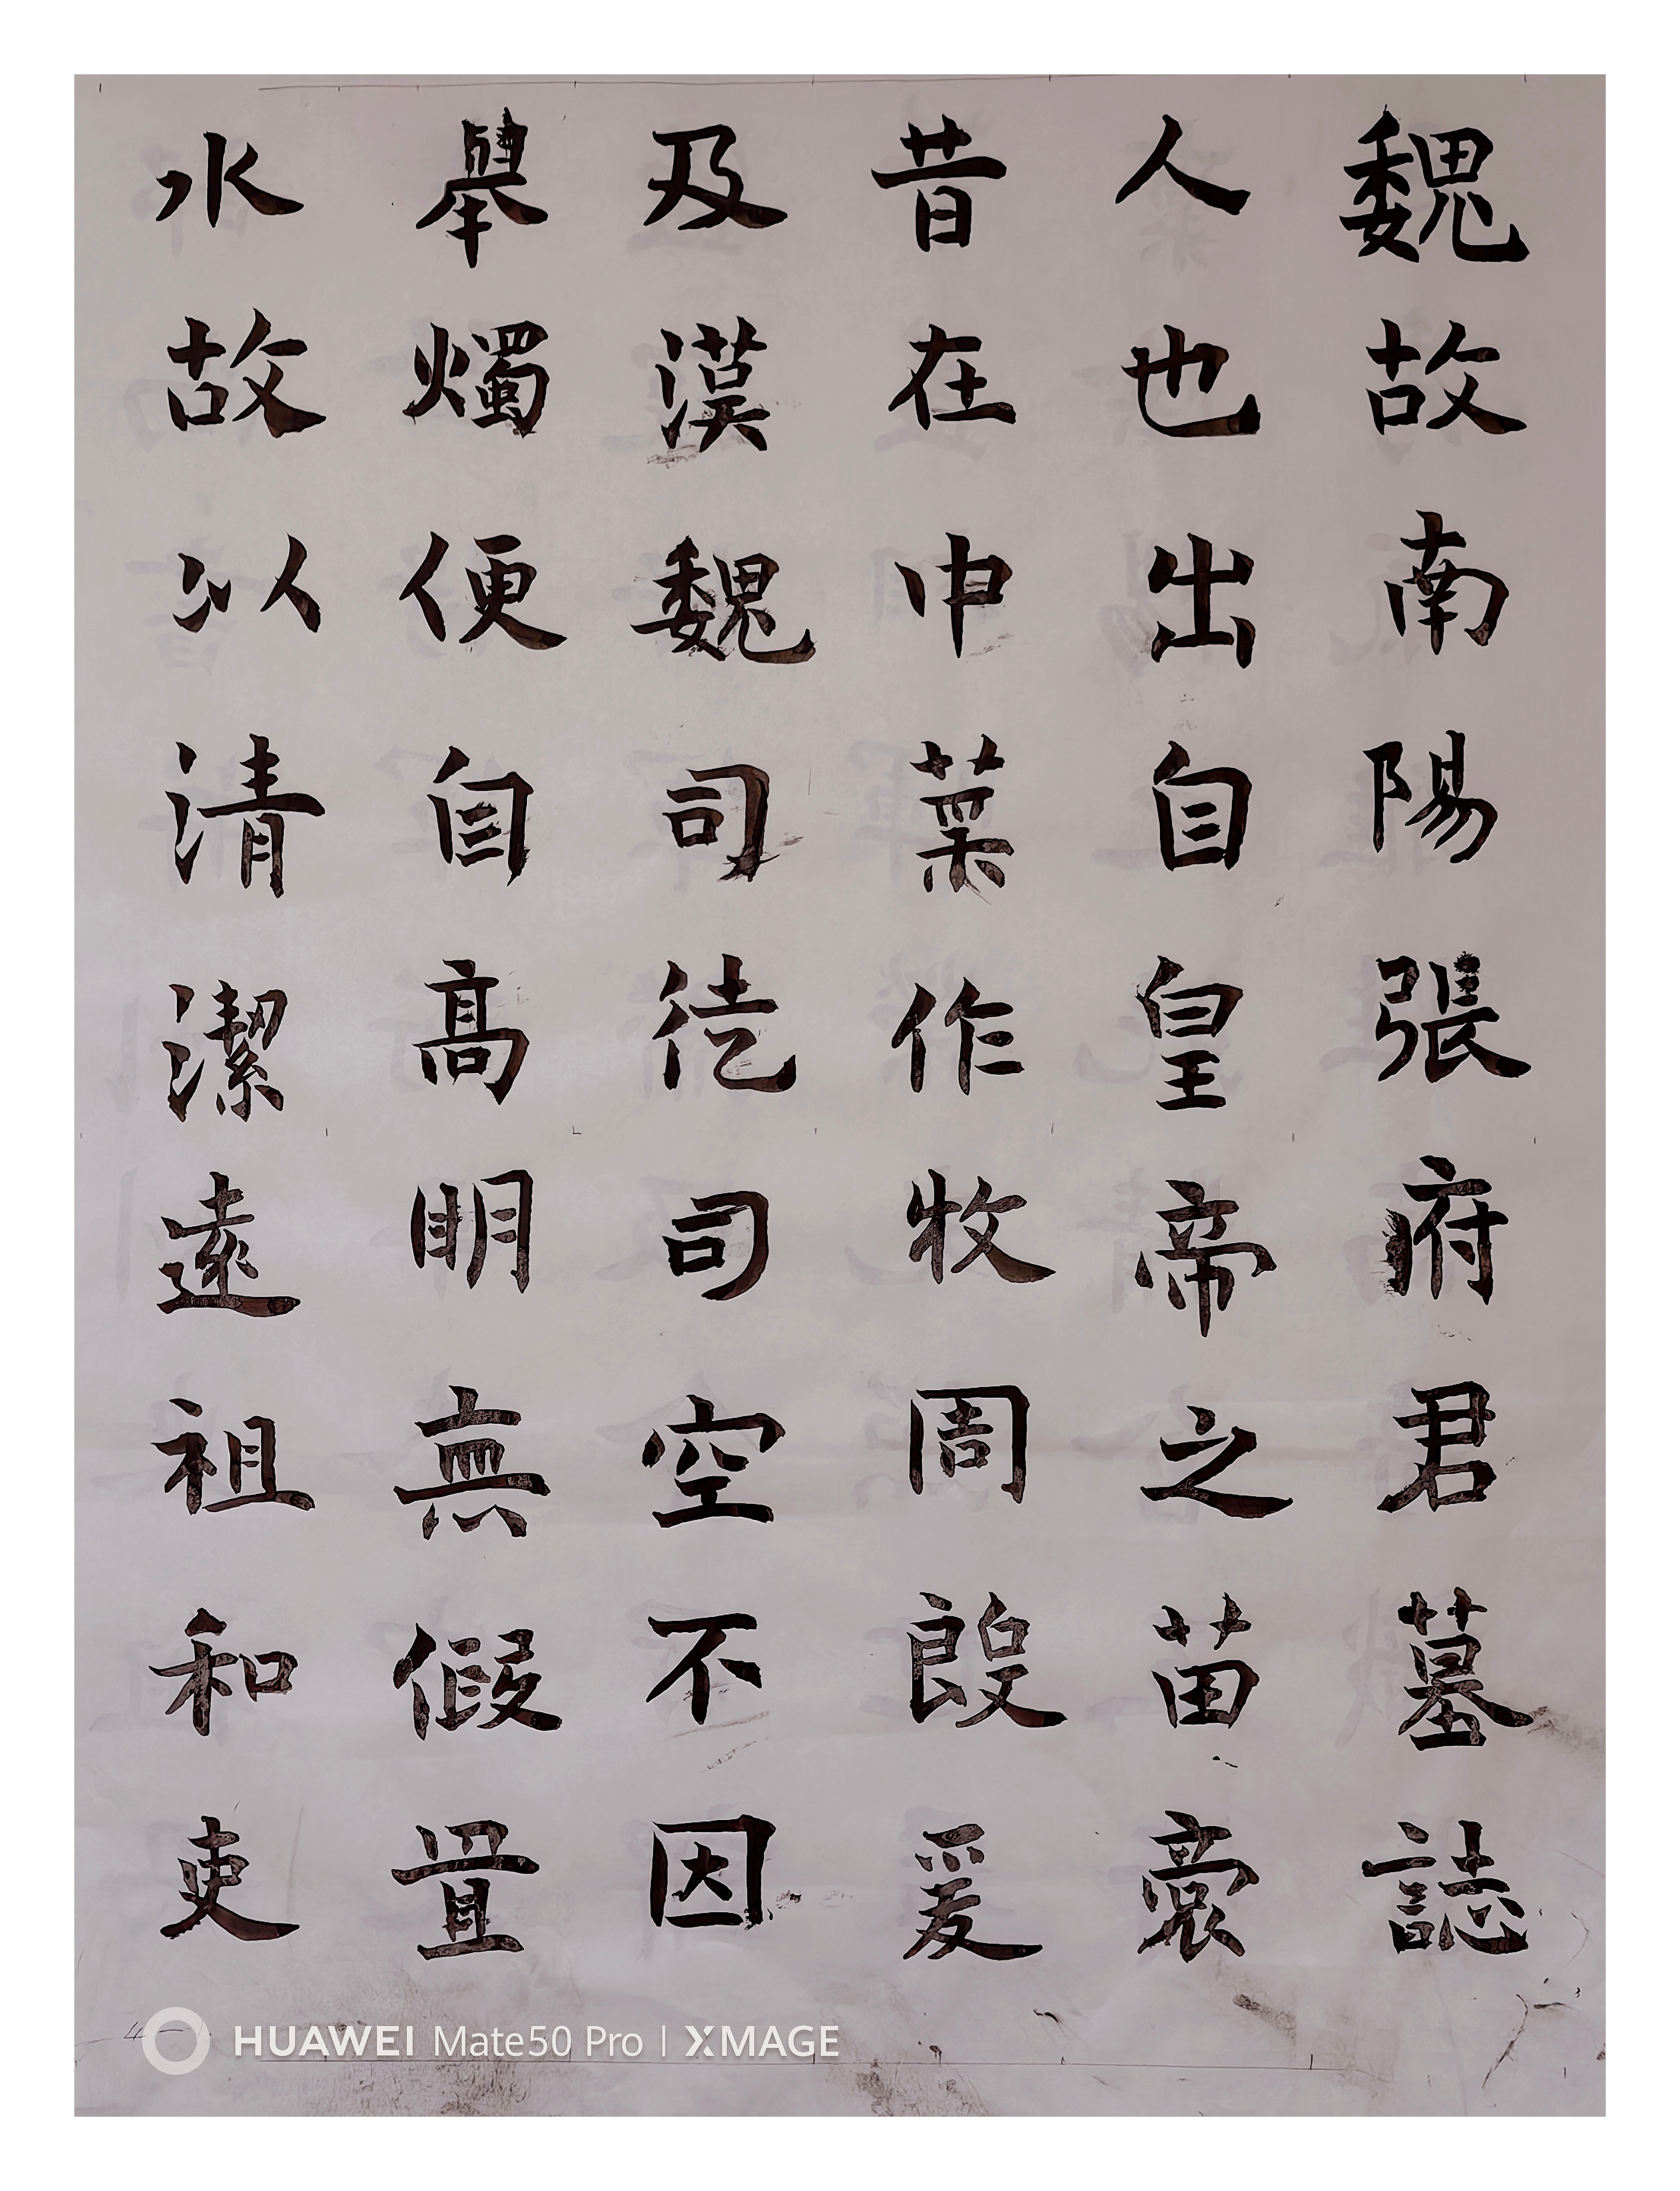 魏故南陽張府君墓誌
人也出自皇帝之苗裔
昔在中葉作牧周殷爰
及漢魏司徒司空不因
舉燭便自高明無假置
水故以清潔遠祖和吏
HUAWEI Mate50 Pro | XMAGE